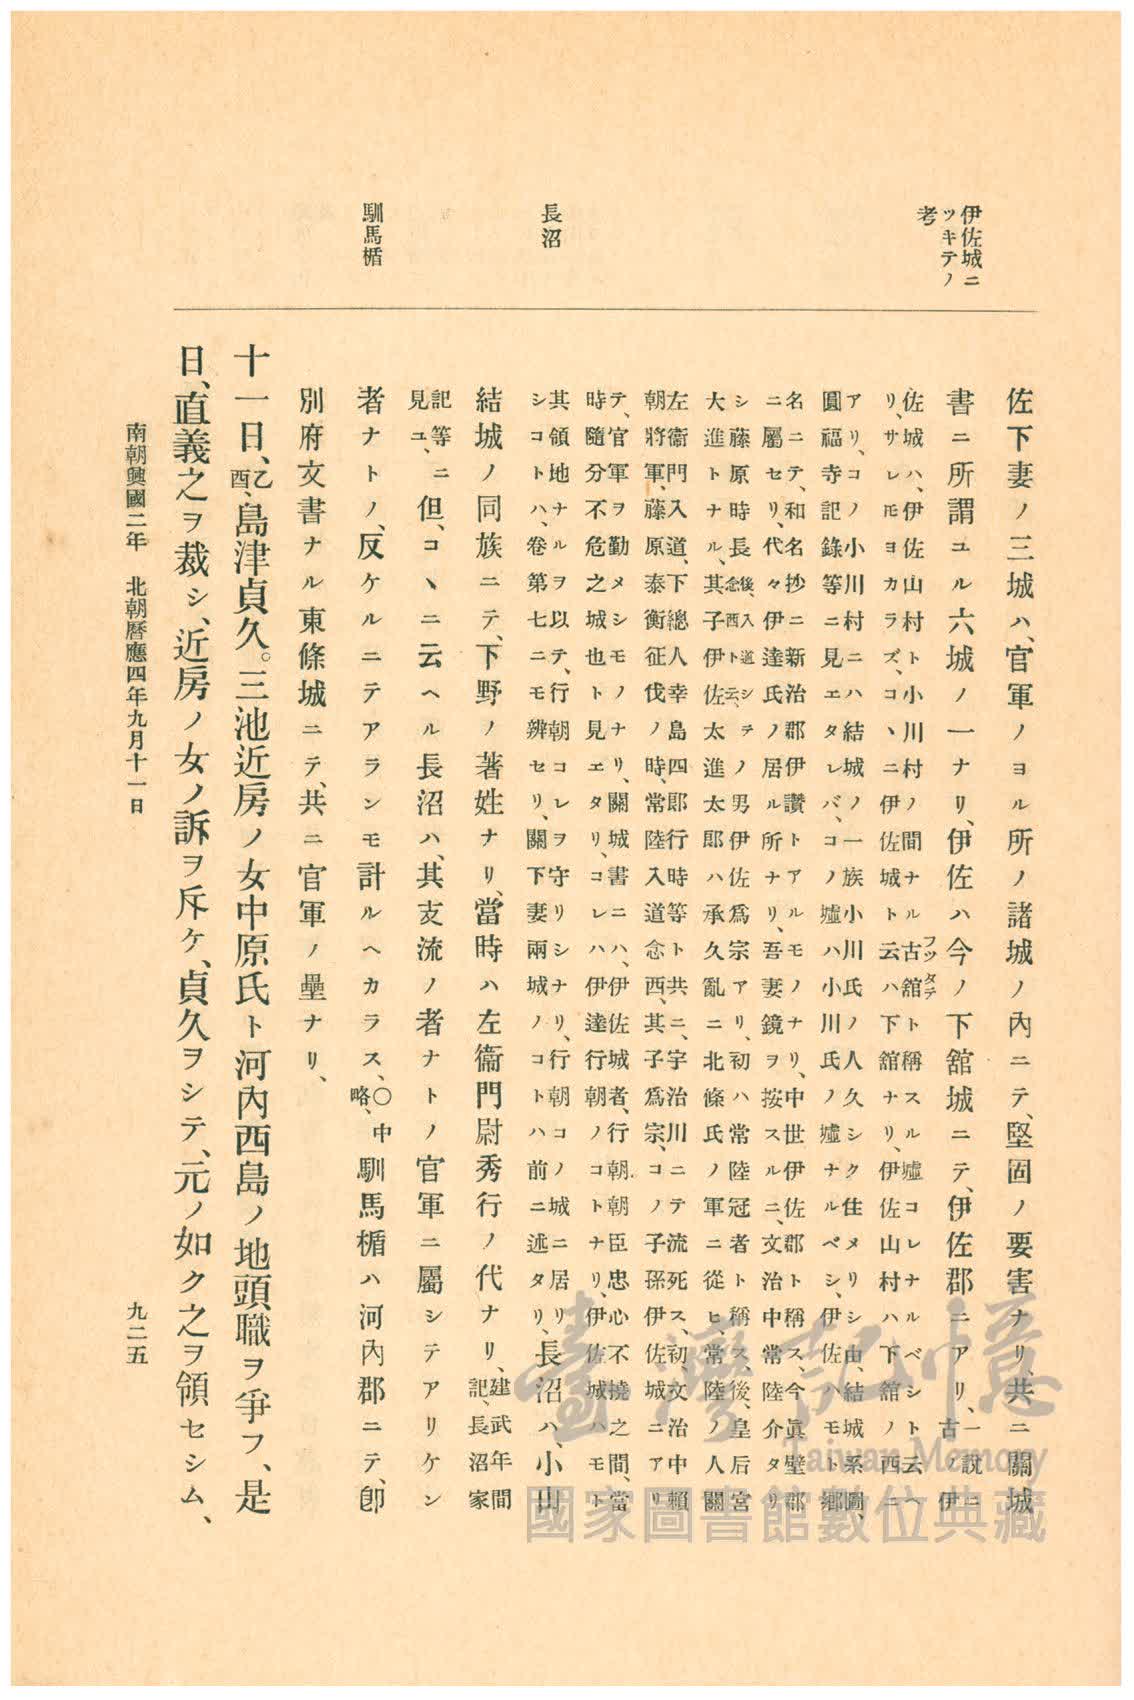 伊佐城ニ
ツキテノ
考
長沼
馴馬楯
佐下妻ノ三城ハ、官軍ノヨル所ノ諸城ノ內ニテ、堅固ノ要害ナリ、共ニ關城
書ニ所謂ユル六城ノ一ナリ、伊佐ハ今ノ下舘城ニテ、伊佐郡ニアリ、一說ニ古ノ伊
佐城ハ、伊佐山村ト小川村ノ間ナル古舘ト稱スル墟コレナルベシト云ヘ
フツタテ
リ、サレモヨカラズ、コヽニ伊佐城ト云ハ下舘ナリ、伊佐山村ハ下舘ノ西ニ
アリ、コノ小川村ニハ結城ノ一族小川氏ノ人久シク住メリシ由、結城系圖、
圓福寺記錄等ニ見エタレバ、コノ墟ハ小川氏ノ墟ナルベシ、伊佐ハモト鄕
名ニテ、和名抄ニ新治郡伊讚トアルモノナリ、中世伊佐郡ト稱ス、今眞壁郡
ニ屬セリ、代々伊達氏ノ居ル所ナリ、吾妻鏡ヲ按スルニ、文治中常陸介タリ
シ藤原時長後、入道シテ念西ト云、ノ男伊佐爲宗アリ、初ハ常陸冠者ト稱ス、後、皇后宮
大進トナル、其子伊佐太進太郞ハ承久亂ニ北條氏ノ軍ニ從ヒ、常陸ノ人關
左衞門入道、下總人幸島四郞行時等ト共ニ、宇治川ニテ流死ス、初、文治中賴
朝將軍、藤原泰衡征伐ノ時、常陸入道念西、其子爲宗、コノ子孫伊佐城ニアリ
テ、官軍ヲ勤メシモノナリ、關城書ニハ、伊佐城者、行朝朝臣忠心不撓之間、當
時隨分不危之城也ト見エタリ、コレハ伊達行朝ノコトナリ、伊佐城ハモト
其領地ナルヲ以テ、行朝コレヲ守リシナリ、行朝コノ城ニ居リ
シコトハ、卷第七ニモ辨セリ、關下妻兩城ノコトハ前ニ述タリ、長沼ハ、小山
結城ノ同族ニテ、下野ノ著姓ナリ、當時ハ左衞門尉秀行ノ代ナリ、建武年間記、長沼家
記等ニ見ユ、但、コヽニ云ヘル長沼ハ、其支流ノ者ナトノ官軍ニ屬シテアリケン
者ナトノ、反ケルニテアランモ計ルヘカラス、○中略、馴馬楯ハ河內郡ニテ、卽
別府文書ナル東條城ニテ、共ニ官軍ノ壘ナリ、
十一日、乙酉、島津貞久。三池近房ノ女中原氏ト河內西島ノ地頭職ヲ爭フ、是
日、直義之ヲ裁シ、近房ノ女ノ訴ヲ斥ケ、貞久ヲシテ、元ノ如ク之ヲ領セシム、
南朝興國二年 北朝曆應四年九月十一日
九二五
臺灣記憶
Taiwan Memory
國家圖書館數位典藏